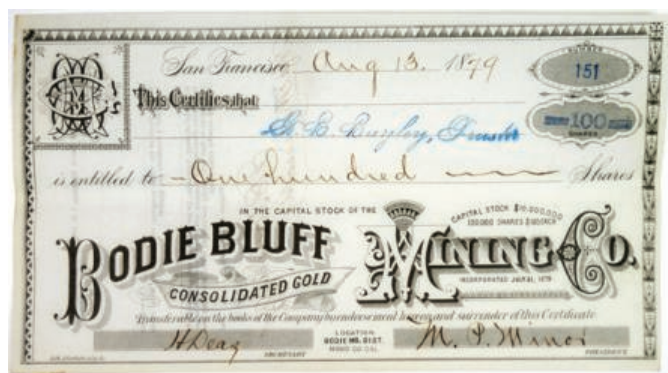 San Francisco Aug 13. 1879
NUMBER
151
This Certifies that
100
SHARES
G. B. Bayley, Trustee
is entitled to One hundred Shares
IN THE CAPITAL STOCK OF THE
CAPITAL STOCK $10,000,000
100,000 SHARES $100 EACH
BODIE BLUFF
CONSOLIDATED GOLD
MINING CO.
INCORPORATED
Transferable on the books of the Company by endorsement hereon and surrender of this Certificate
LOCATION
BODIE MG. DIST.
MONO CO. CAL.
SECRETARY
M. P. Minor
PRESIDENT